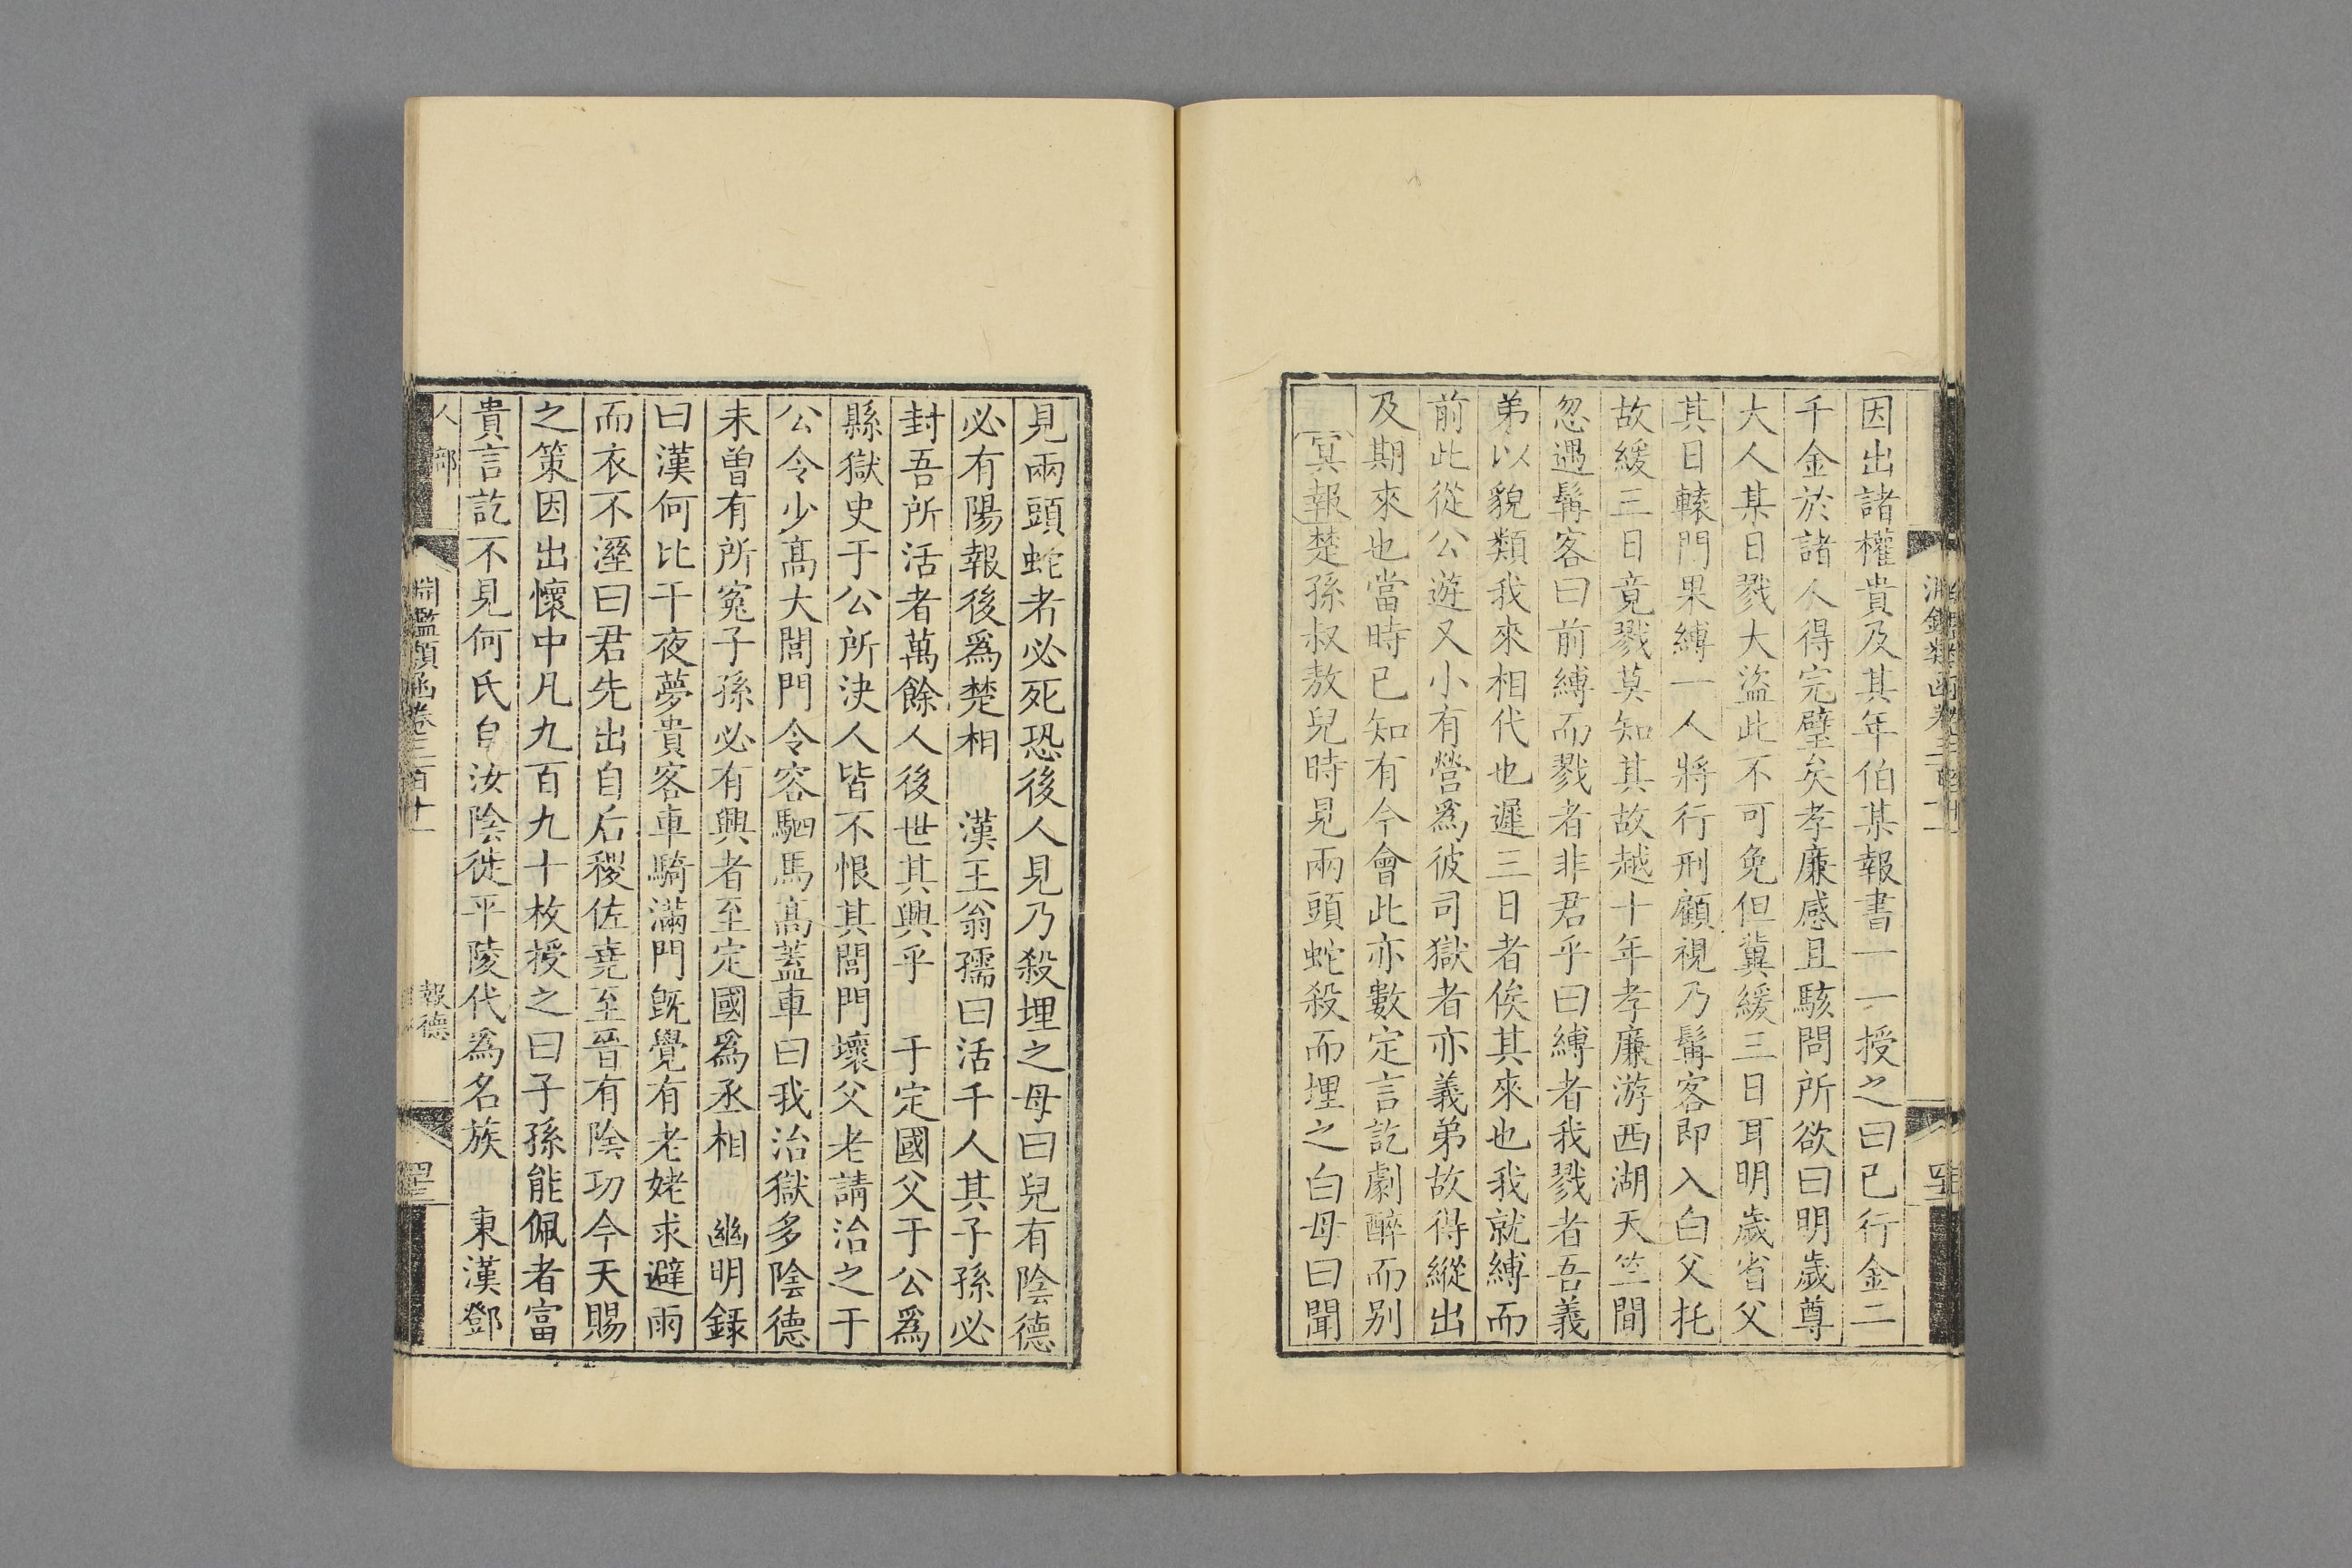 因出諸權貴及其年伯某報書一一授之曰已行金二
千金於諸人得完璧矣孝廉感且駭問所欲曰明歲尊
大人某日戮大盜此不可免但冀緩三日耳明歲省父
其日轅門果縛一人將行刑顧視乃髯客即入白父托
故緩三日竟戮莫知其故越十年孝廉游西湖天竺間
忽遇髯客曰前縛而戮者非君乎曰縛者我戮者吾義
弟以貌類我來相代也遲三日者俟其來也我就縛而
前此從公遊又小有營爲彼司獄者亦義弟故得縱出
及期來也當時已知有今會此亦數定言訖劇醉而別
冥報楚孫叔敖兒時見兩頭蛇殺而埋之白母曰聞
見兩頭蛇者必死恐後人見乃殺埋之母曰兒有陰德
必有陽報後爲楚相　漢王翁孺曰活千人其子孫必
封吾所活者萬餘人後世其興乎　于定國父于公爲
縣獄史于公所決人皆不恨其閭門壞父老請治之于
公令少高大閭門令容駟馬高蓋車曰我治獄多陰德
未曾有所冤子孫必有興者至定國爲丞相　幽明錄
曰漢何比干夜夢貴客車騎滿門旣覺有老姥求避雨
而衣不溼曰君先出自后稷佐堯至晉有陰功今天賜
之策因出懷中凡九百九十枚授之曰子孫能佩者富
貴言訖不見何氏自汝陰徙平陵代爲名族　東漢鄧
人部
淵鑑類函卷三百十一
報德